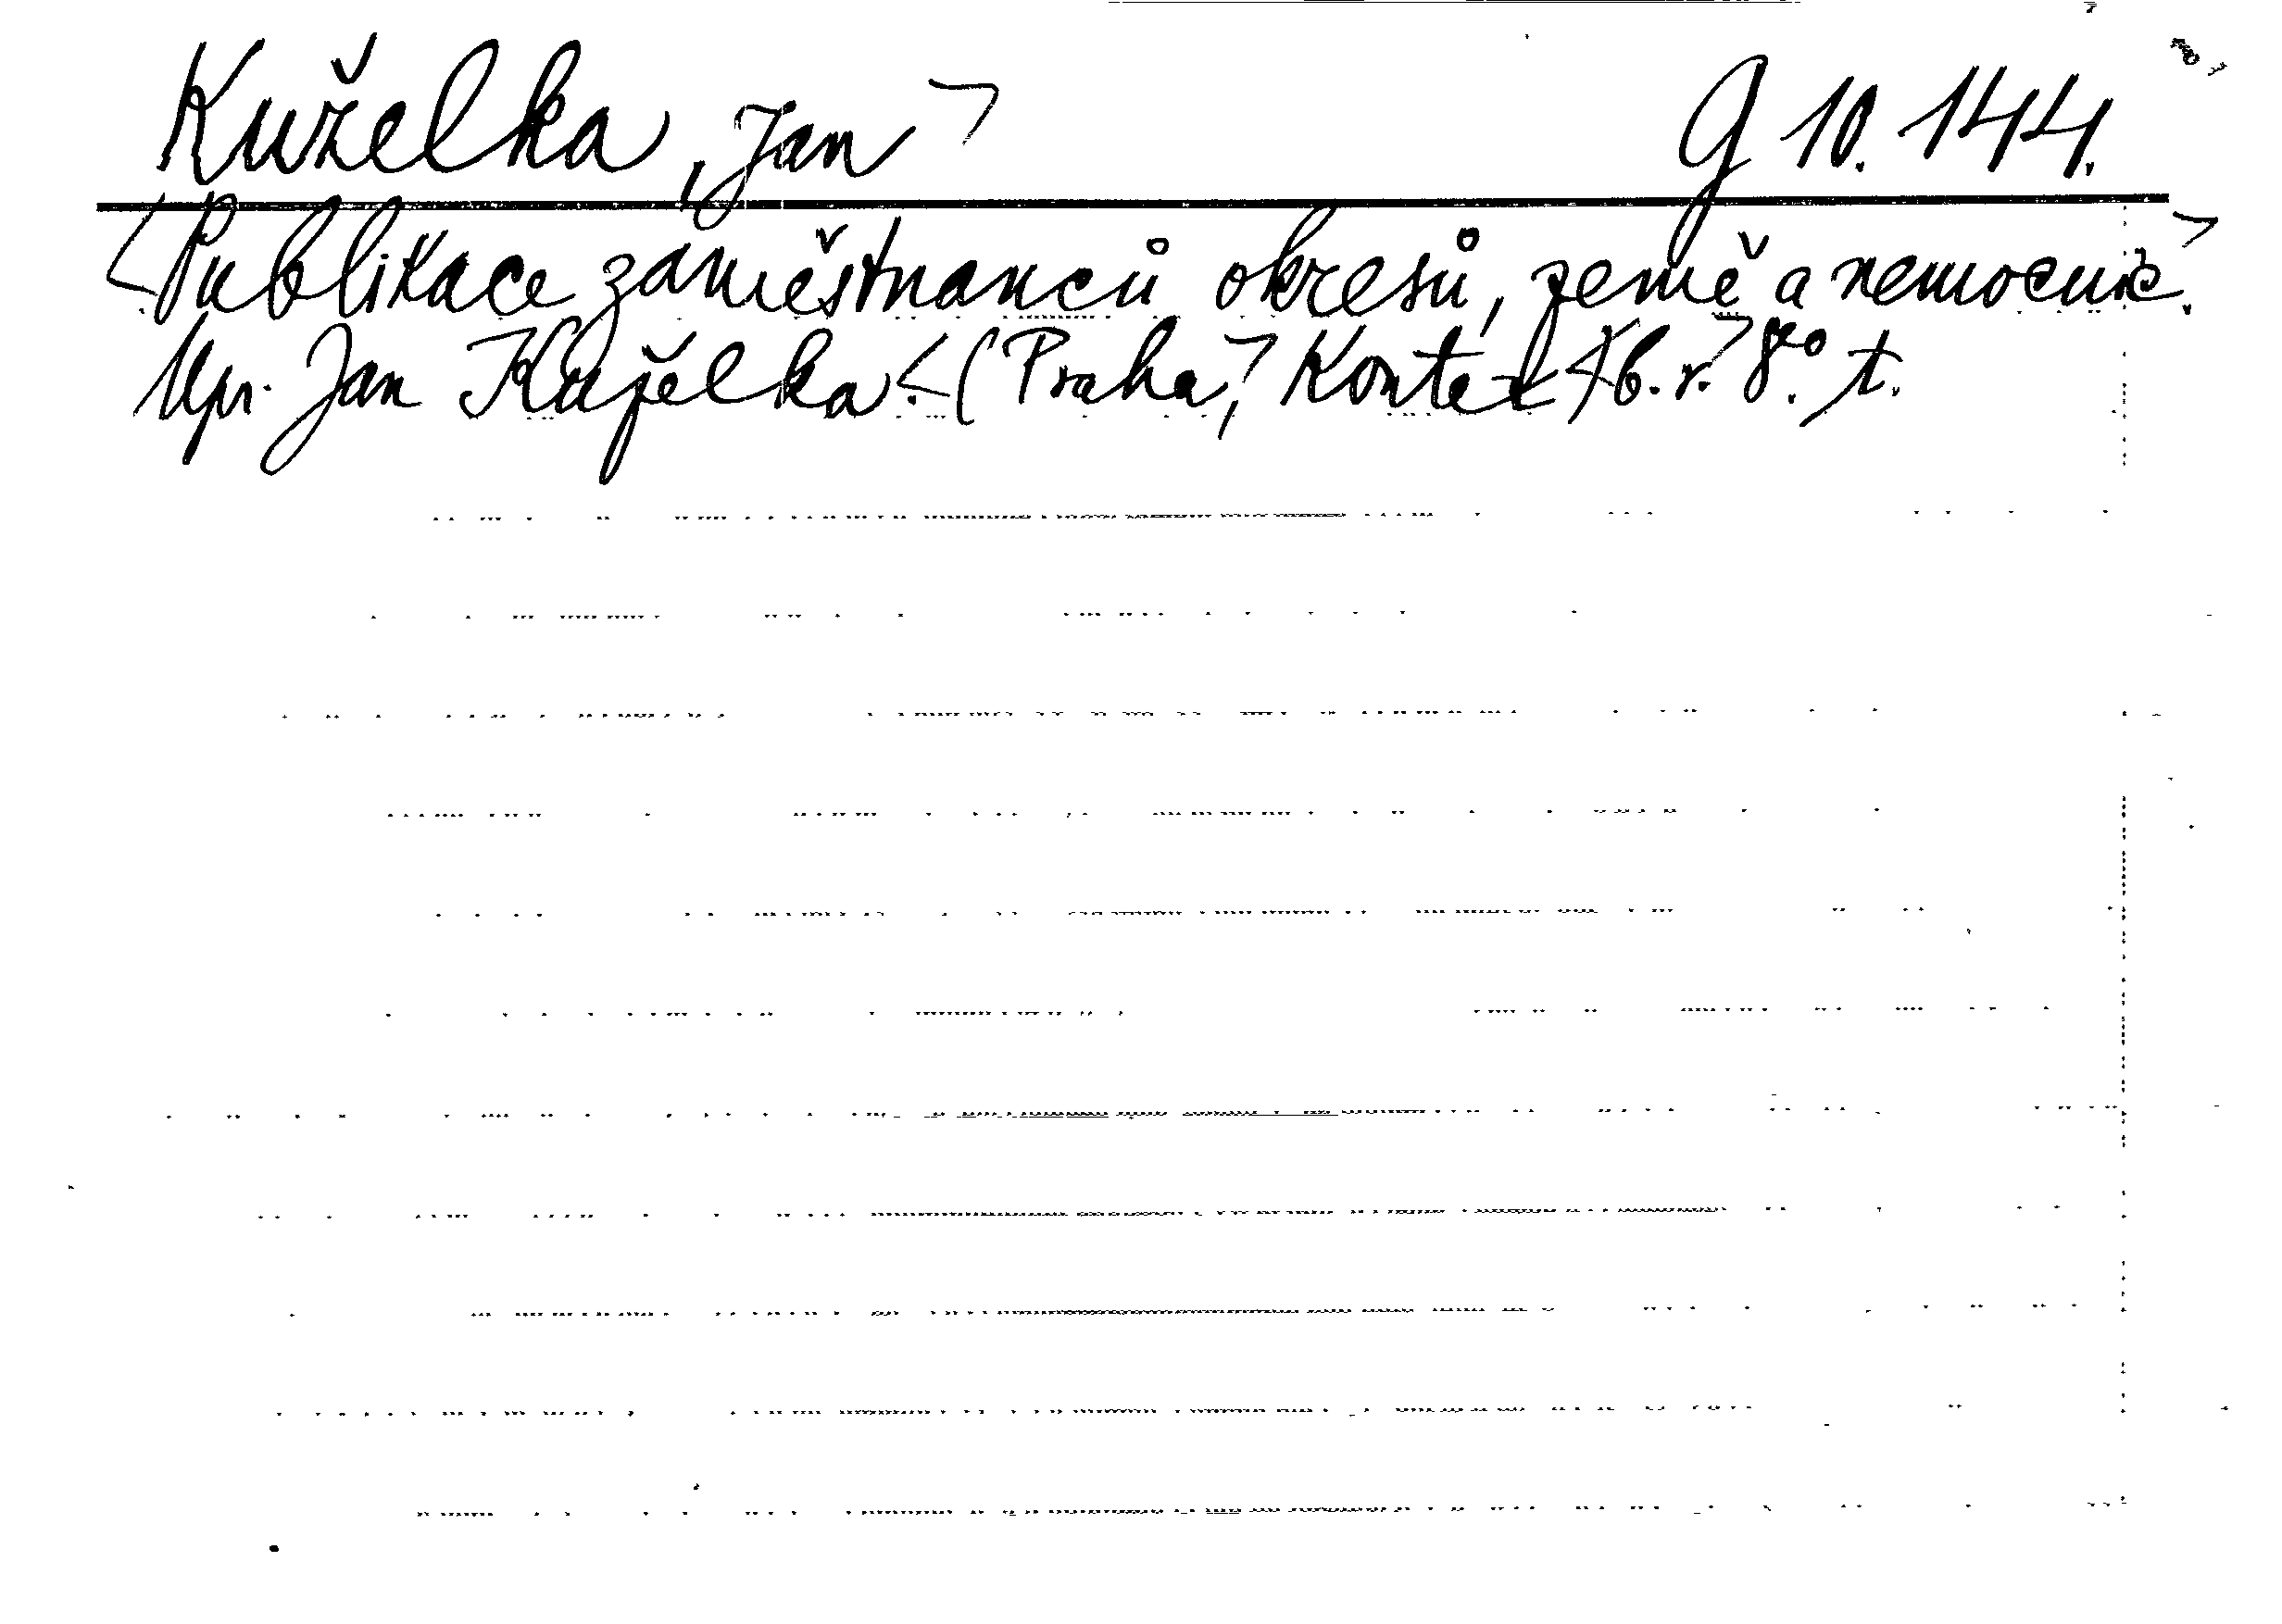 Kuželka, Jan> G 10.144.
<Publikace zaměstnanců okresů, země a nemocnic>.
Upr. Jan Kuželka. <(Praha,> Kontex <b. r.> 8° t.